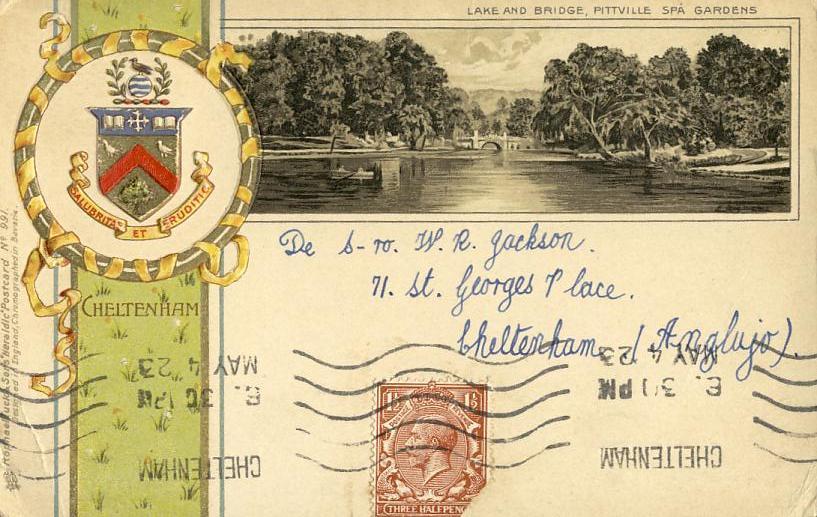 LAKE AND BRIDGE, PITTVILLE SPA GARDENS
SALUBRITAS ET ERUDITIO
CHELTENHAM
De S-ro. W. R. Jackson.
71. St. Georges Place.
Cheltenham (Anglujo).
MAY 4 23
MAY 4 23
CHELTENHAM
CHELTENHAM
THREE HALFPENCE
Raphael Tuck & Sons' "Heraldic" Postcard No 991.
Designed in England, Chromographed in Bavaria.